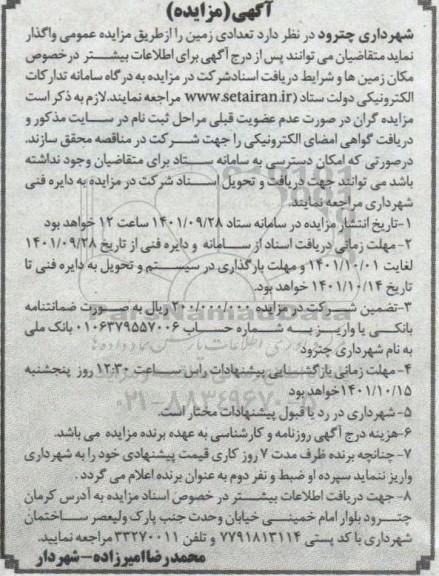 آگهی (مزایده)
شهرداری چترود در نظر دارد تعدادی زمین را ازطریق مزایده عمومی واگذار
نماید متقاضیان می توانند پس از درج آگهی برای اطلاعات بیشتر درخصوص
مکان زمین ها و شرایط دریافت اسنادشرکت در مزایده به درگاه سامانه تدارکات
الکترونیکی دولت ستاد (www.setairan.ir) مراجعه نمایند.لازم به ذکر است
مزایده گران در صورت عدم عضویت قبلی مراحل ثبت نام در سایت مذکور و
دریافت گواهی امضای الکترونیکی را جهت شرکت در مناقصه محقق سازند.
درصورتی که امکان دسترسی به سامانه ستاد برای متقاضیان وجود نداشته
باشد می توانند جهت دریافت و تحویل اسناد شرکت در مزایده به دایره فنی
شهرداری مراجعه نمایند.
۱-تاریخ انتشار مزایده در سامانه ستاد ۱۴۰۱/۰۹/۲۸ ساعت ۱۲ خواهد بود
۲-مهلت زمانی دریافت اسناد از سامانه و دایره فنی از تاریخ ۱۴۰۱/۰۹/۲۸
لغایت ۱۴۰۱/۱۰/۰۱ و مهلت بارگذاری در سیستم و تحویل به دایره فنی تا
تاریخ ۱۴۰۱/۱۰/۱۴ خواهد بود.
۳-تضمین شرکت در مزایده ۲۰۰/۰۰۰/۰۰۰ ریال به صورت ضمانتنامه
بانکی یا واریز به شماره حساب ۰۱۰۶۳۷۹۵۵۷۰۰۶ بانک ملی
به نام شهرداری چترود
۴-مهلت زمانی بازگشایی پیشنهادات راس ساعت ۱۲:۳۰ روز پنجشنبه
۱۴۰۱/۱۰/۱۵خواهد بود
۵-شهرداری در رد یا قبول پیشنهادات مختار است.
۶-هزینه درج آگهی روزنامه و کارشناسی به عهده برنده مزایده می باشد.
۷-چنانچه برنده ظرف مدت ۷ روز کاری قیمت پیشنهادی خود را به شهرداری
واریز ننماید سپرده او ضبط و نفر دوم به عنوان برنده اعلام می گردد.
۸-جهت دریافت اطلاعات بیشتر در خصوص اسناد مزایده به آدرس کرمان
چترود بلوار امام خمینی خیابان وحدت جنب پارک ولیعصر ساختمان
شهرداری با کد پستی ۷۷۹۱۸۱۳۱۱۴ و تلفن ۳۳۲۷۰۰۱۱ مراجعه نمایید.
محمدرضاامیرزاده-شهردار
ParsNamadData
۰۲۱-۸۸۳۴۹۶۷۰-۵